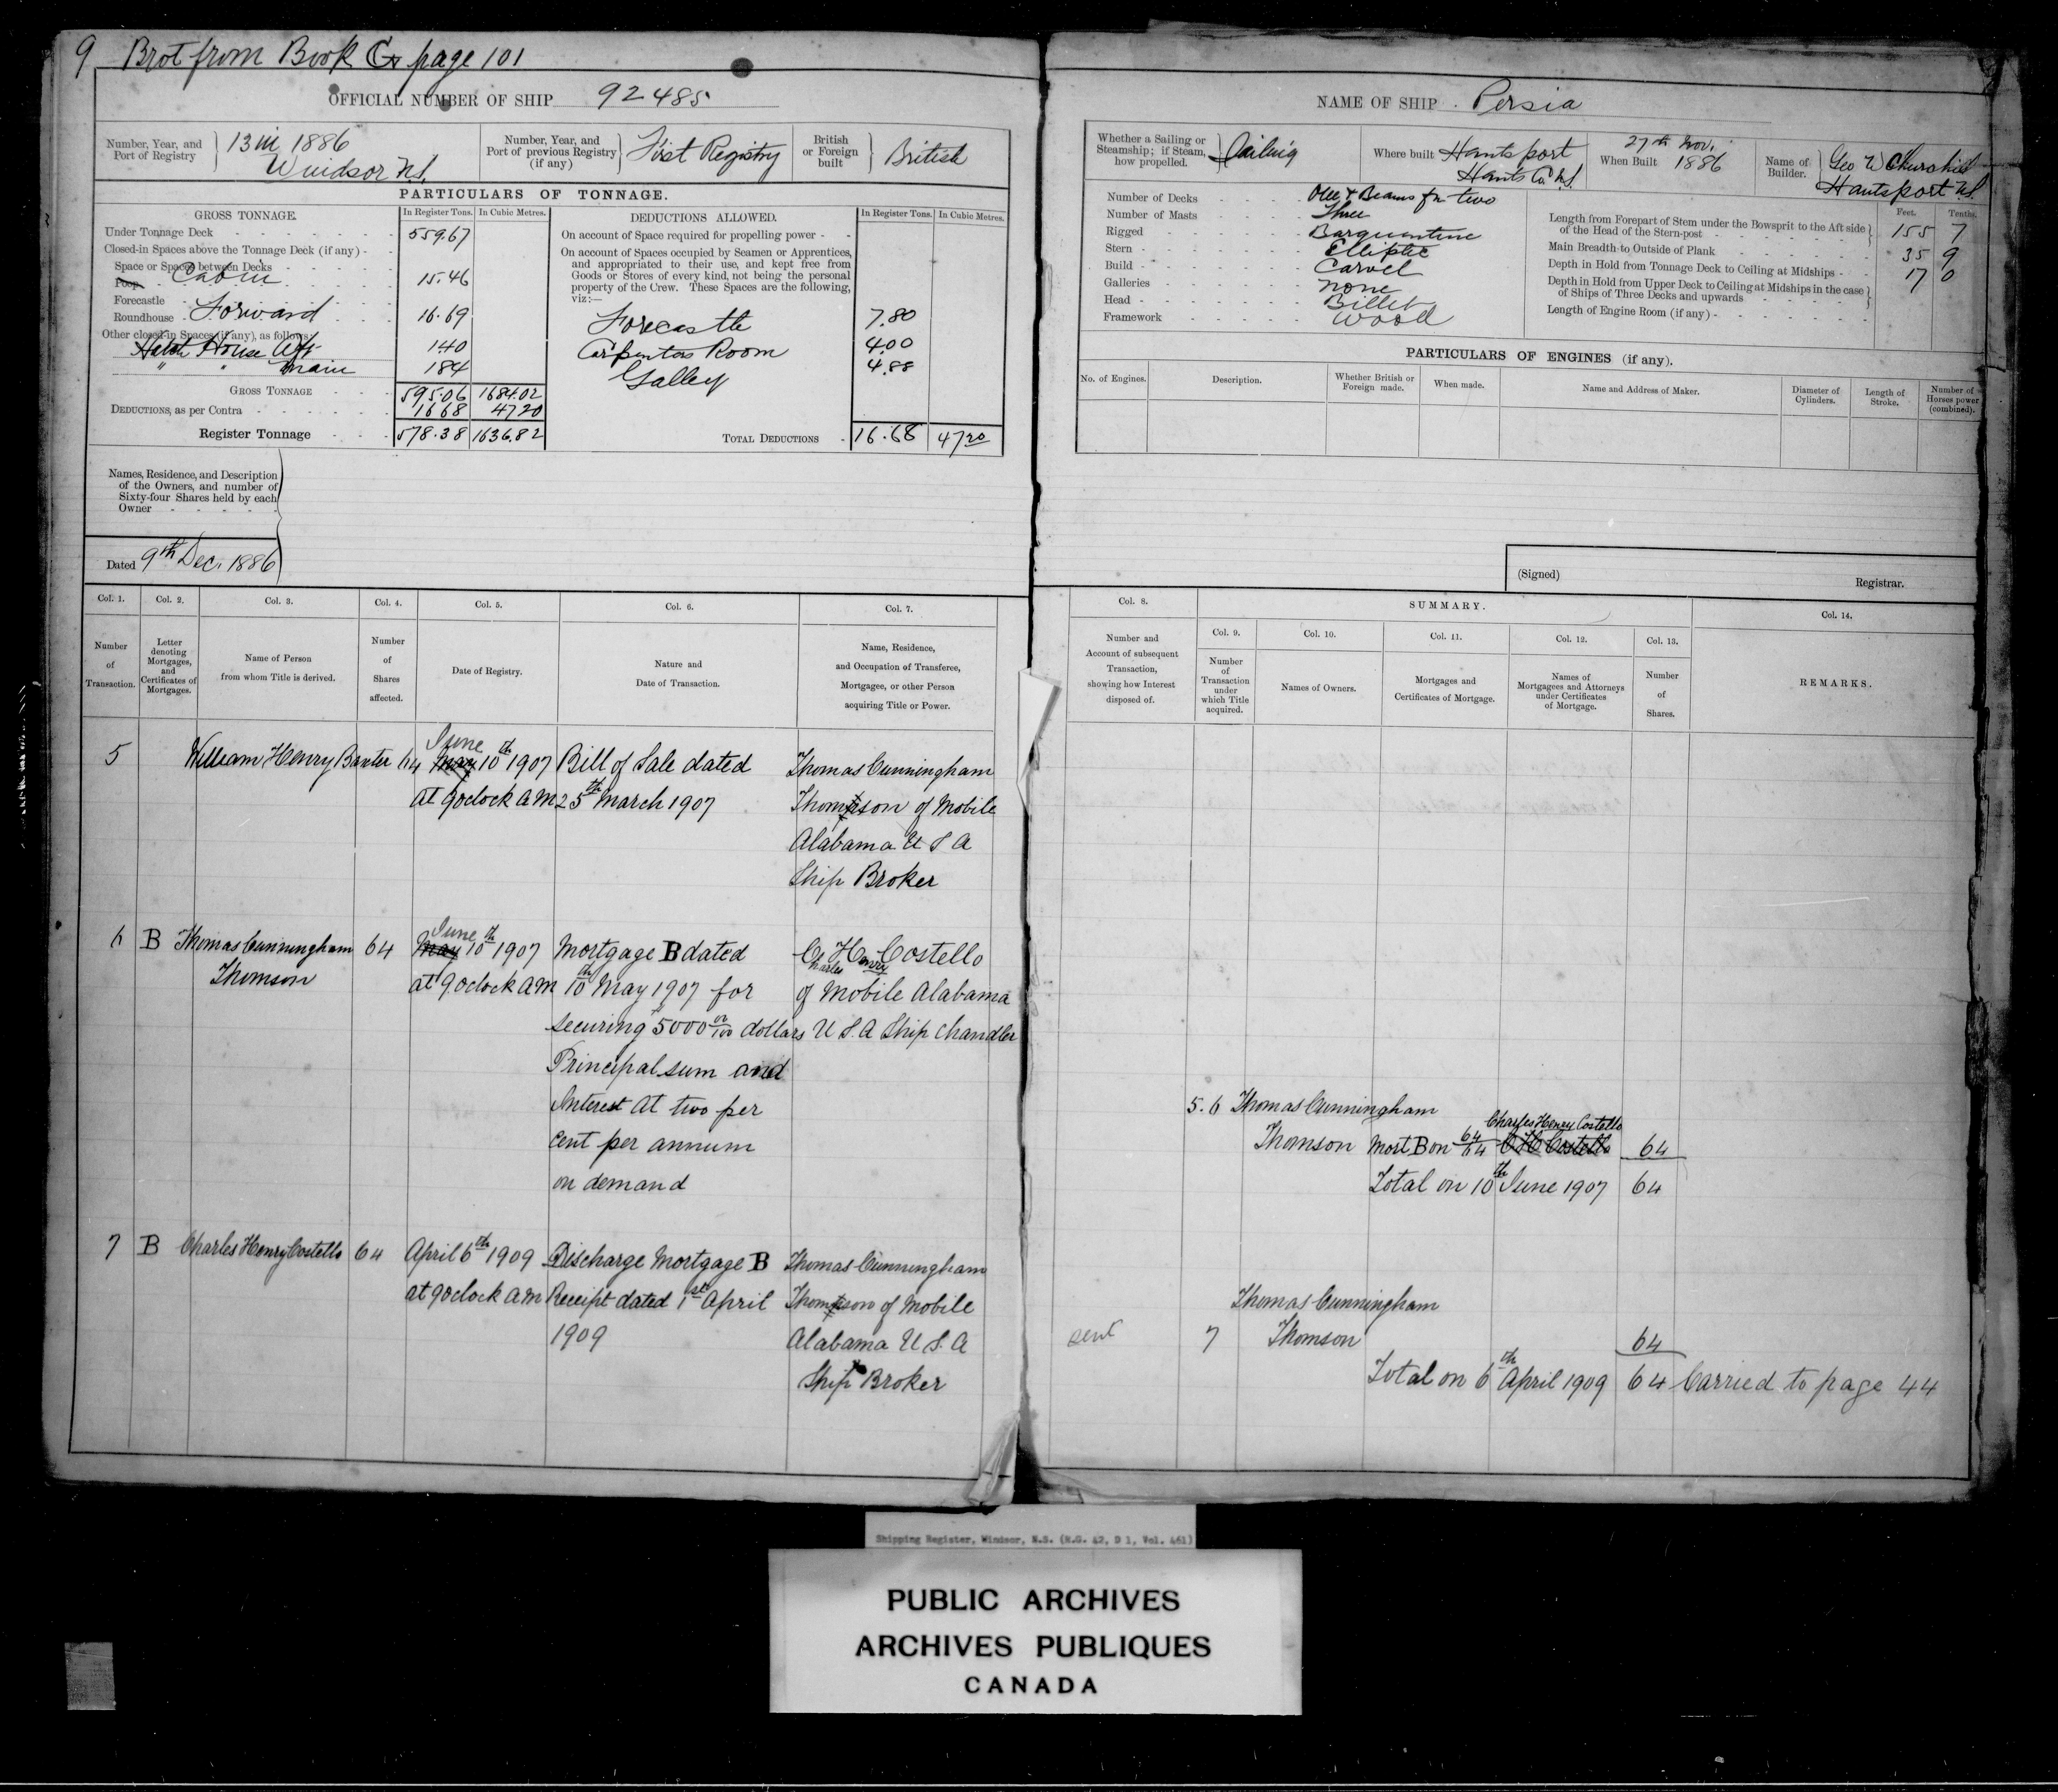 9 Brot from Book G page 101
OFFICIAL NUMBER OF SHIP 92485
Number, Year, and Port of Registry 13 in 1886 Windsor N.S.
Number, Year, and Port of previous Registry (if any) First Registry
British or Foreign built British
PARTICULARS OF TONNAGE.
GROSS TONNAGE. In Register Tons. In Cubic Metres.
Under Tonnage Deck 559.67
Closed-in Spaces above the Tonnage Deck (if any)
Space or Spaces between Decks
Poop Cabin 15.46
Forecastle
Roundhouse Forward 16.69
Other closed-in Spaces (if any), as follows
Hatch House Aft 140
" " main 184
GROSS TONNAGE 595.06 1684.02
DEDUCTIONS, as per Contra 16 68 47 20
Register Tonnage 578.38 1636.82
DEDUCTIONS ALLOWED. In Register Tons. In Cubic Metres.
On account of Space required for propelling power
On account of Spaces occupied by Seamen or Apprentices,
and appropriated to their use, and kept free from
Goods or Stores of every kind, not being the personal
property of the Crew. These Spaces are the following,
viz:—
Forecastle 7.80
Carpenters Room 4.00
Galley 4.88
TOTAL DEDUCTIONS 16.68 47 20
Names, Residence, and Description
of the Owners, and number of
Sixty-four Shares held by each
Owner
Dated 9th Dec. 1886
Col. 1. Col. 2. Col. 3. Col. 4. Col. 5. Col. 6. Col. 7.
Number of Transaction.
Letter denoting Mortgages, and Certificates of Mortgages.
Name of Person from whom Title is derived.
Number of Shares affected.
Date of Registry.
Nature and Date of Transaction.
Name, Residence, and Occupation of Transferee, Mortgagee, or other Person acquiring Title or Power.
June
5 William Henry Baxter 64 May 10th 1907 Bill of Sale dated Thomas Cunningham
at 9 oclock AM 25th March 1907 Thomson of Mobile
Alabama U S A
Ship Broker
June
6 B Thomas Cunningham 64 May 10th 1907 Mortgage B dated C H Costello
Charles Henry
Thomson at 9 oclock AM 10th May 1907 for of Mobile Alabama
securing 5000 00/100 dollars U S. A Ship Chandler
Principal sum and
Interest at two per
cent per annum
on demand
7 B Charles Henry Costello 64 April 6th 1909 Discharge Mortgage B Thomas Cunningham
at 9 oclock AM Receipt dated 1st April Thomson of Mobile
1909 Alabama U S. A
Ship Broker
NAME OF SHIP Persia
Whether a Sailing or Steamship; if Steam, how propelled. Sailing
Where built Hantsport Hants Co. N.S.
When Built 27th Nov. 1886
Name of Builder. Geo W Churchill Hantsport N.S.
Number of Decks One & Beams for two
Number of Masts Three
Rigged Barquentine
Stern Elliptic
Build Carvel
Galleries None
Head Billet
Framework Wood
Feet. Tenths.
Length from Forepart of Stem under the Bowsprit to the Aft side of the Head of the Stern-post 155 7
Main Breadth to Outside of Plank 35 9
Depth in Hold from Tonnage Deck to Ceiling at Midships 17 0
Depth in Hold from Upper Deck to Ceiling at Midships in the case of Ships of Three Decks and upwards
Length of Engine Room (if any)
PARTICULARS OF ENGINES (if any).
No. of Engines. Description. Whether British or Foreign made. When made. Name and Address of Maker. Diameter of Cylinders. Length of Stroke. Number of Horses power (combined).
(Signed) Registrar.
Col. 8. SUMMARY. Col. 14.
Col. 9. Col. 10. Col. 11. Col. 12. Col. 13.
Number and Account of subsequent Transaction, showing how Interest disposed of.
Number of Transaction under which Title acquired.
Names of Owners.
Mortgages and Certificates of Mortgage.
Names of Mortgagees and Attorneys under Certificates of Mortgage.
Number of Shares.
REMARKS.
5. 6 Thomas Cunningham
Charles Henry Costello
Thomson Mort B on 64/64 C H Costello 64
Total on 10th June 1907 64
Thomas Cunningham
7 Thomson 64
Total on 6th April 1909 64 Carried to page 44
Shipping Register, Windsor, N.S. (R.G. 42, D 1, Vol. 461)
PUBLIC ARCHIVES
ARCHIVES PUBLIQUES
CANADA